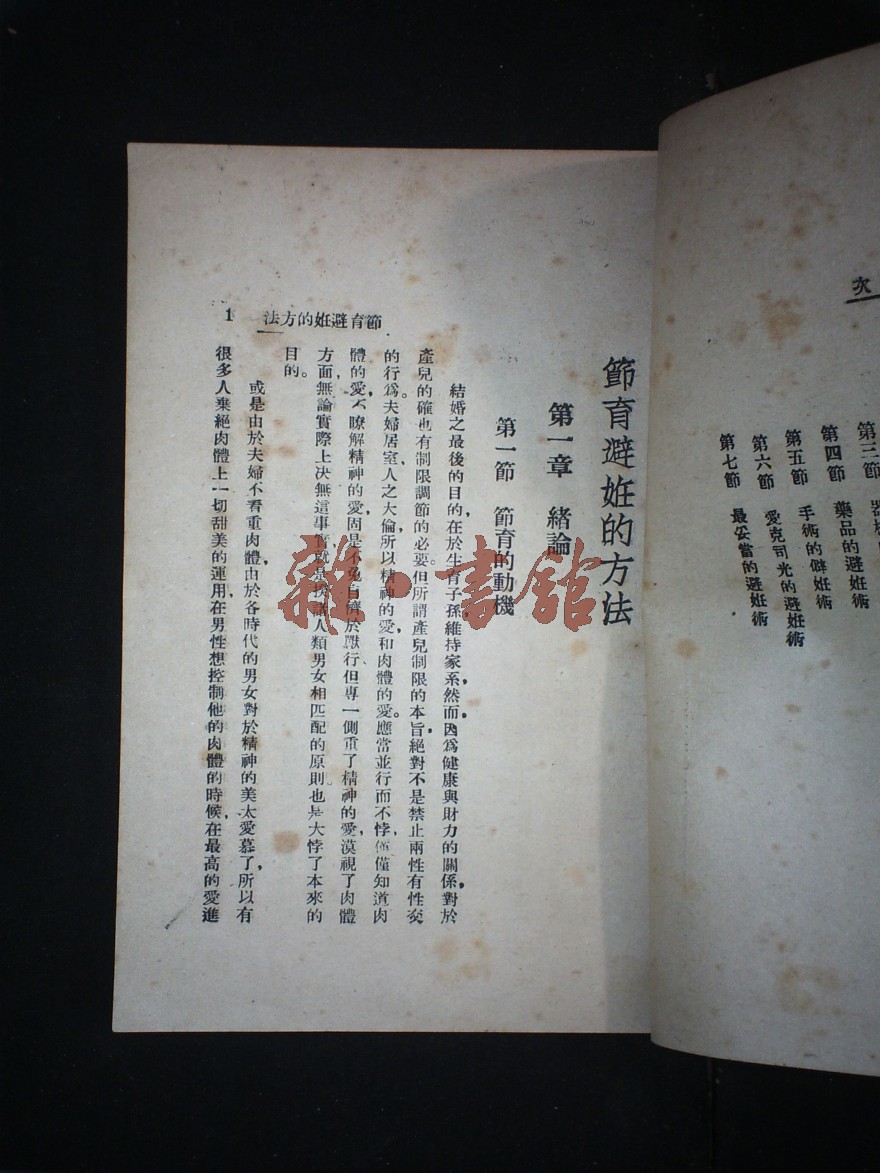 次
第三節
第四節 藥品的避姙術
第五節 手術的僻姙術
第六節 愛克司光的避姙術
第七節 最妥當的避姙術
節育避姙的方法
第一章 緒論
第一節 節育的動機
結婚之最後的目的，在於生育子孫，維持家系，然而，因爲健康與財力的關係，對於
產兒的確也有制限調節的必要。但所謂產兒制限的本旨，絕對不是禁止兩性有性交
的行爲。夫婦居室，人之大倫，所以精神的愛，和肉體的愛。應當並行而不悖，僅僅知道肉
體的愛，不瞭解精神的愛，固是不免自儕於獸行、但專一側重了精神的愛，漠視了肉體
方面，無論實際上決無這事實，就是按諸人類男女相匹配的原則，也是大悖了本來的
目的。
或是由於夫婦不看重肉體，由於各時代的男女對於精神的美太愛慕了，所以有
很多人棄絕肉體上一切甜美的運用，在男性想控制他的肉體的時候，在最高的愛進
節育避姙的方法
1
雜·書館